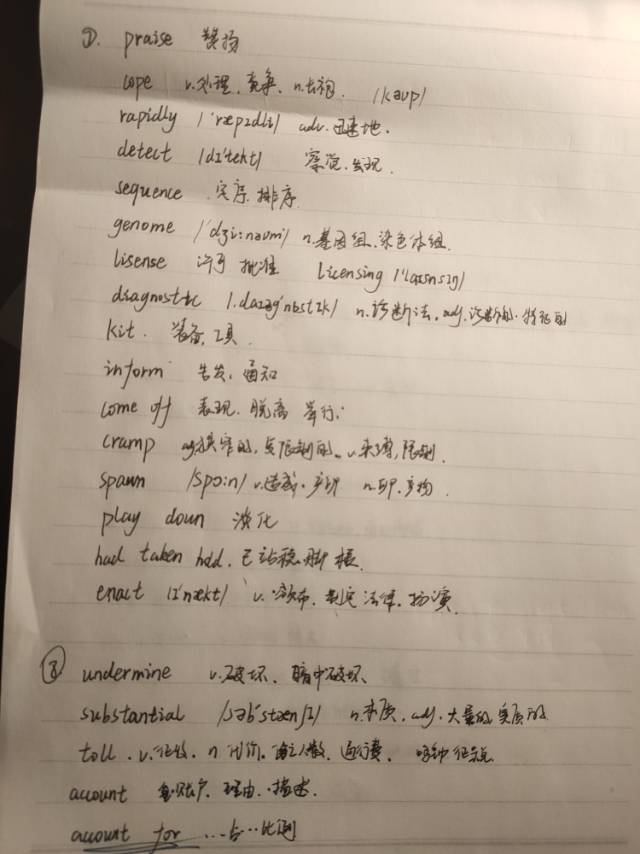 ①. praise 赞扬
cope v.处理, 竞争, n.长袍. /kəup/
rapidly /'ræpɪdli/ adv. 迅速地.
detect /dɪ'tekt/ 察觉.发现.
sequence 次序.排序
genome /'dʒi:nəum/ n.基因组.染色体组.
lisense 许可 批准 licensing /'laɪsnsɪŋ/
diagnostic /,daɪəg'nɒstɪk/ n.诊断法, adj.诊断的.特征的
kit. 装备,工具.
inform 告发,通知
come off 表现.脱离 举行.
cramp adj.狭窄的, 受限制的. v.束缚,限制.
spawn /spɔ:n/ v.造成.产卵 n.卵.产物.
play down 淡化
had taken hold. 已站稳脚根.
enact /ɪ'nækt/ v. 颁布. 制定法律. 扮演.
undermine v.破坏、暗中破坏、
substantial /səb'stænʃl/ n.本质. adj.大量的,实质的
toll. v.征收, n 代价. 通行费. 鸣钟 征税.
account 账户. 理由. 描述.
account for ...占...比例